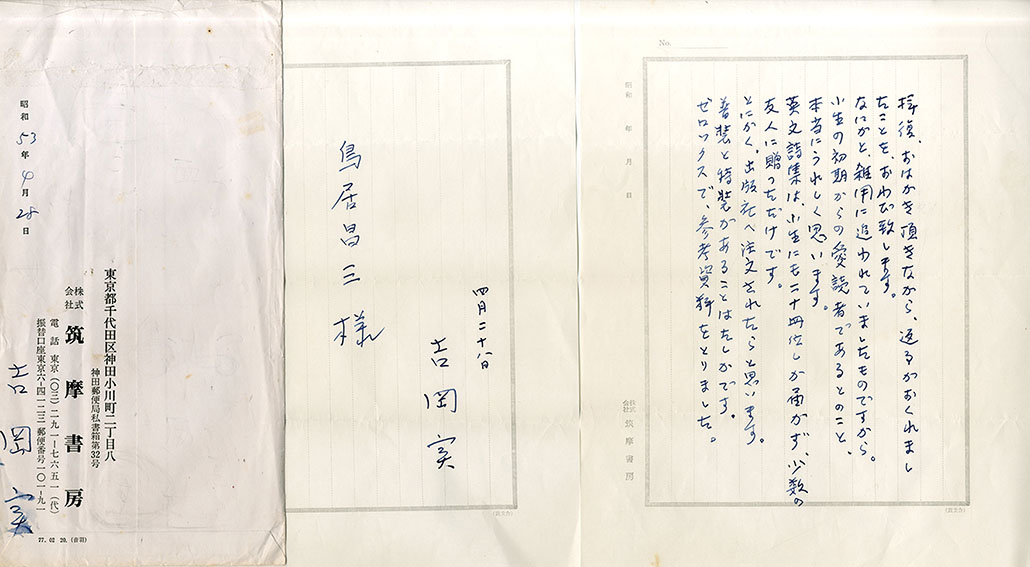 No.
昭和 年 月 日
拝復、おはがき頂きながら、返事がおくれまし
たことを、おわび致します。
なにかと、雑用に追われていましたものですから。
小生の初期からの愛読者であるとのこと、
本当にうれしく思います。
英文詩集は、小生にも二十冊位しか届かず、少数の
友人に贈っただけです。
とにかく、出版社へ注文されたらと思います。
普装と特装があることはたしかです。
ゼロックスで、参考資料をとりました。
株式会社 筑摩書房
四月二十八日
吉岡実
鳥居昌三様
昭和53年4月28日
東京都千代田区神田小川町二丁目八
神田郵便局私書箱第32号
株式会社 筑摩書房
電話 東京(〇三)二九一―七六五一(代)
振替口座東京六―四一二三 郵便番号一〇一―九一
吉岡実
77. 02 20. (音羽)